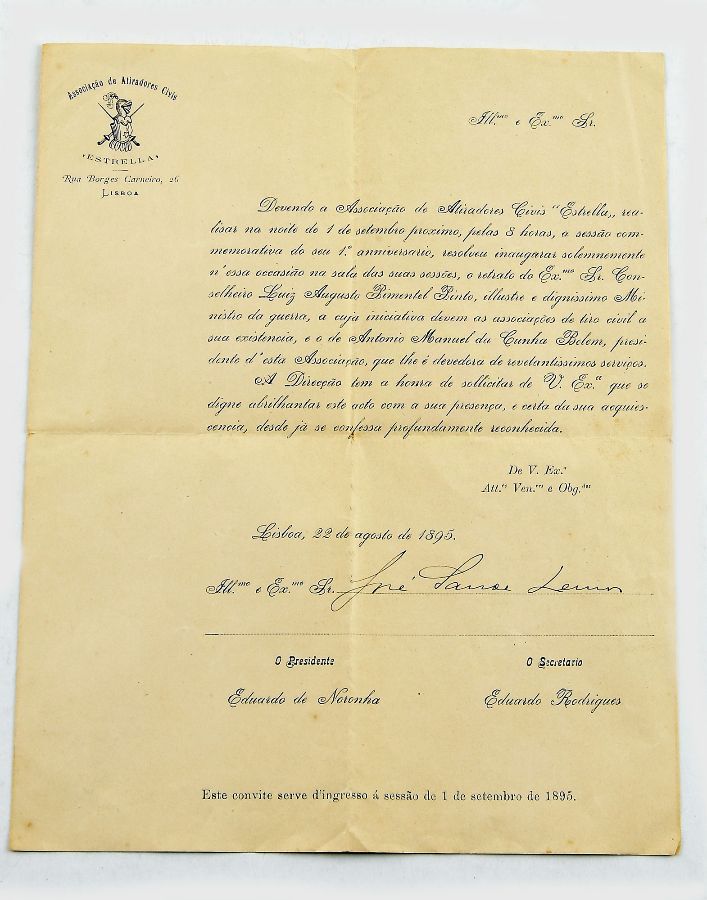 Associação de Atiradores Civis
"ESTRELLA"
Rua Borges Carneiro, 26
LISBOA
Ill.mo e Ex.mo Sr.
Devendo a Associação de Atiradores Civis "Estrella,, rea-
lisar na noite de 1 de setembro proximo, pelas 8 horas, a sessão com-
memorativa do seu 1.º anniversario, resolveu inaugurar solemnemente
n'essa occasião na sala das suas sessões, o retrato do Ex.mo Sr. Con-
selheiro Luiz Augusto Pimentel Pinto, illustre e dignissimo Mi-
nistro da guerra, a cuja iniciativa devem as associações de tiro civil a
sua existencia, e o de Antonio Manuel da Cunha Belem, presi-
dente d'esta Associação, que lhe é devedora de revelantissimos serviços.
A Direcção tem a honra de sollicitar de V. Ex.a que se
digne abrilhantar este acto com a sua presença, e certa da sua acquies-
cencia, desde já se confessa profundamente reconhecida.
De V. Ex.a
Att.os Ven.res e Obg.dos
Lisboa, 22 de agosto de 1895.
Ill.mo e Ex.mo Sr. José Lemos
O Presidente
O Secretario
Eduardo de Noronha
Eduardo Rodrigues
Este convite serve d'ingresso á sessão de 1 de setembro de 1895.